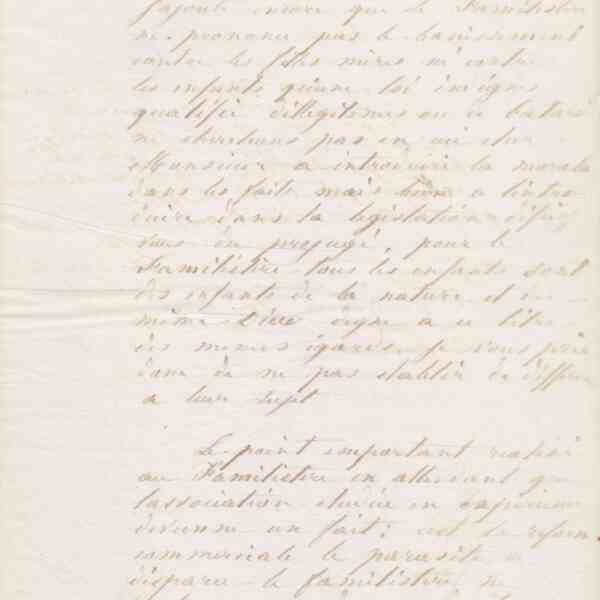 j'ajoute encore que le Familistère
ne prononce pas le banissement
contre les filles mères ni contre
les enfants qu'une loi indigne
qualifie d'illégitimes ou de batards
ne cherchons pas en
Monsieur a introduire la morale
dans les faits mais bien a l'intro
duire dans la législation
vous du préjugé, pour le
Familistère tous les enfants sont
des enfants de la nature et de
même Dieu digne a ce titre
des mêmes égards. Je vous prie
donc de ne pas établir de différen
a leur sujet
Le point important réalisé
au Familistère en attendant que
l'association étudiée en
devienne un fait; c'est la réforme
commerciale le parasite
disparu le familistère